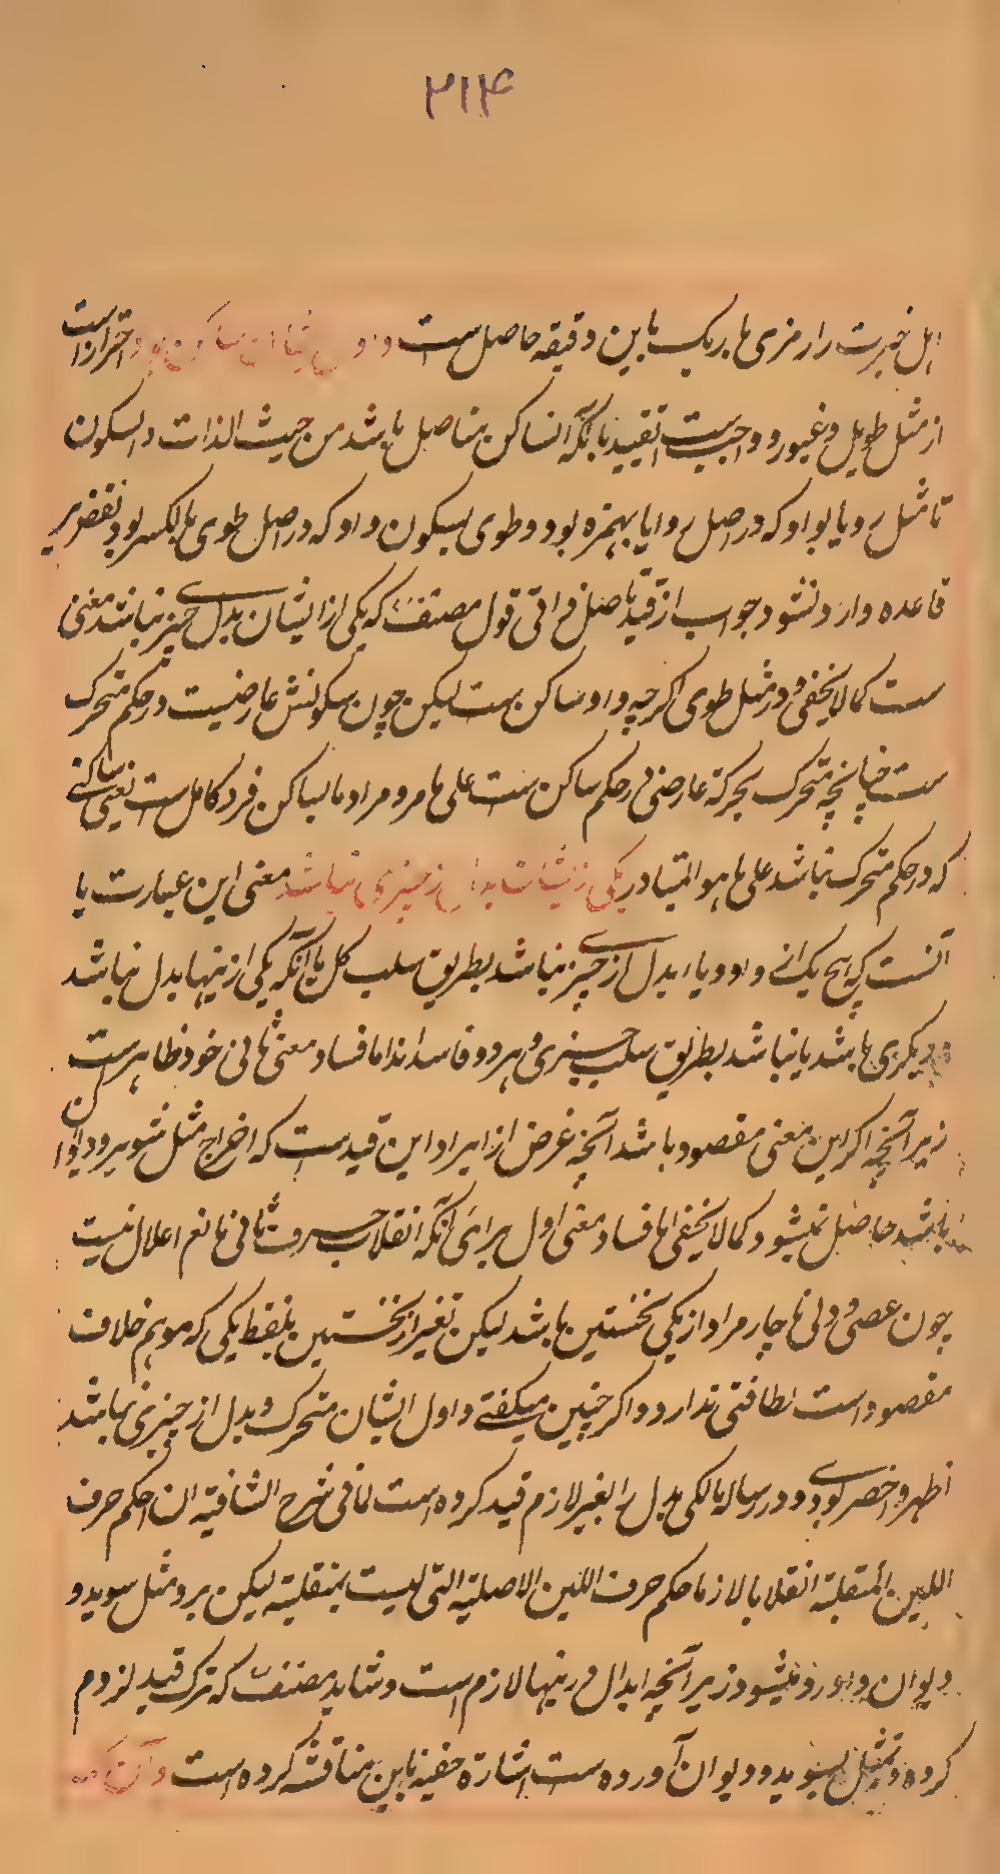 ۲۱۴
اهل خبرت را رمزی باریک باین دقیقه حاصل ست و اول ایشان ساکن بود احتراز است
از مثل طویل و غیور و واجب ست تقیید بآنکه آن ساکن متاصل باشد من حیث الذات والسکون
تا مثل رویا بواو که در اصل رؤیا بهمزه بود و طوی بسکون واو که در اصل طوی بالکسر بود نقض بر
قاعده وارد نشود جواب از قید اصل فراقی قول مصنف که یکی از ایشان بدل از چیزی نباشد مغنی
ست کما لا یخفی و در مثل طوی اگرچه واو ساکن ست لیکن چون سکونش عارضیست در حکم متحرک
ست چنانچه متحرک بحرکة عارضی در حکم ساکن ست علی ما مر و مراد ما بساکن فرد کامل ست یعنی ساکنے
که در حکم متحرک نباشد علی ما هو المتبادر یکی از ایشان بدل از چیزی نباشد معنی این عبارت یا
آنست که هیچ یک از واو و یا بدل از چیزے نباشد بطریق سلب کل یا آنکه یکی ازینها بدل نباشد
و دیگری باشد یا نباشد بطریق سلب جزئی و هر دو فاسد اند اما فساد معنی ثانی خود ظاهرست
زیرآنچه اگر این معنی مقصود باشد آنچه غرض از ایراد این قید ست که اخراج مثل سویر و دیوان
باشد حاصل نمیشود کما لا یخفی اما فساد معنی اول برای آنکه انقلاب حرف ثانی مانع اعلال نیست
چون عصی و دلی ناچار مراد از یکی نخستین باشد لیکن تغیر از نخستین بلفظ یکی که موهم خلاف
مقصود است لطافتی ندارد و اگر چنین میگفتے و اول ایشان متحرک و بدل از چیزی نباشد
اظهر و اخصر بودے و در رساله مالکی بدل را بغیر لازم قید کرده است لما فی شرح الشافیة ان حکم حرف
اللین المنقلبة انقلابا لازما حکم حرف اللین الاصلیة التی لیست بمنقلبة لیکن برد مثل سوید و
دیوان وارد میشود زیرآنچه ابدال درینها لازم است و شاید مصنف که ترک قید لزوم
کرده و تمثیل بسوید و دیوان آورده ست اشارة خفیة باین مناقشه کرده است و آن